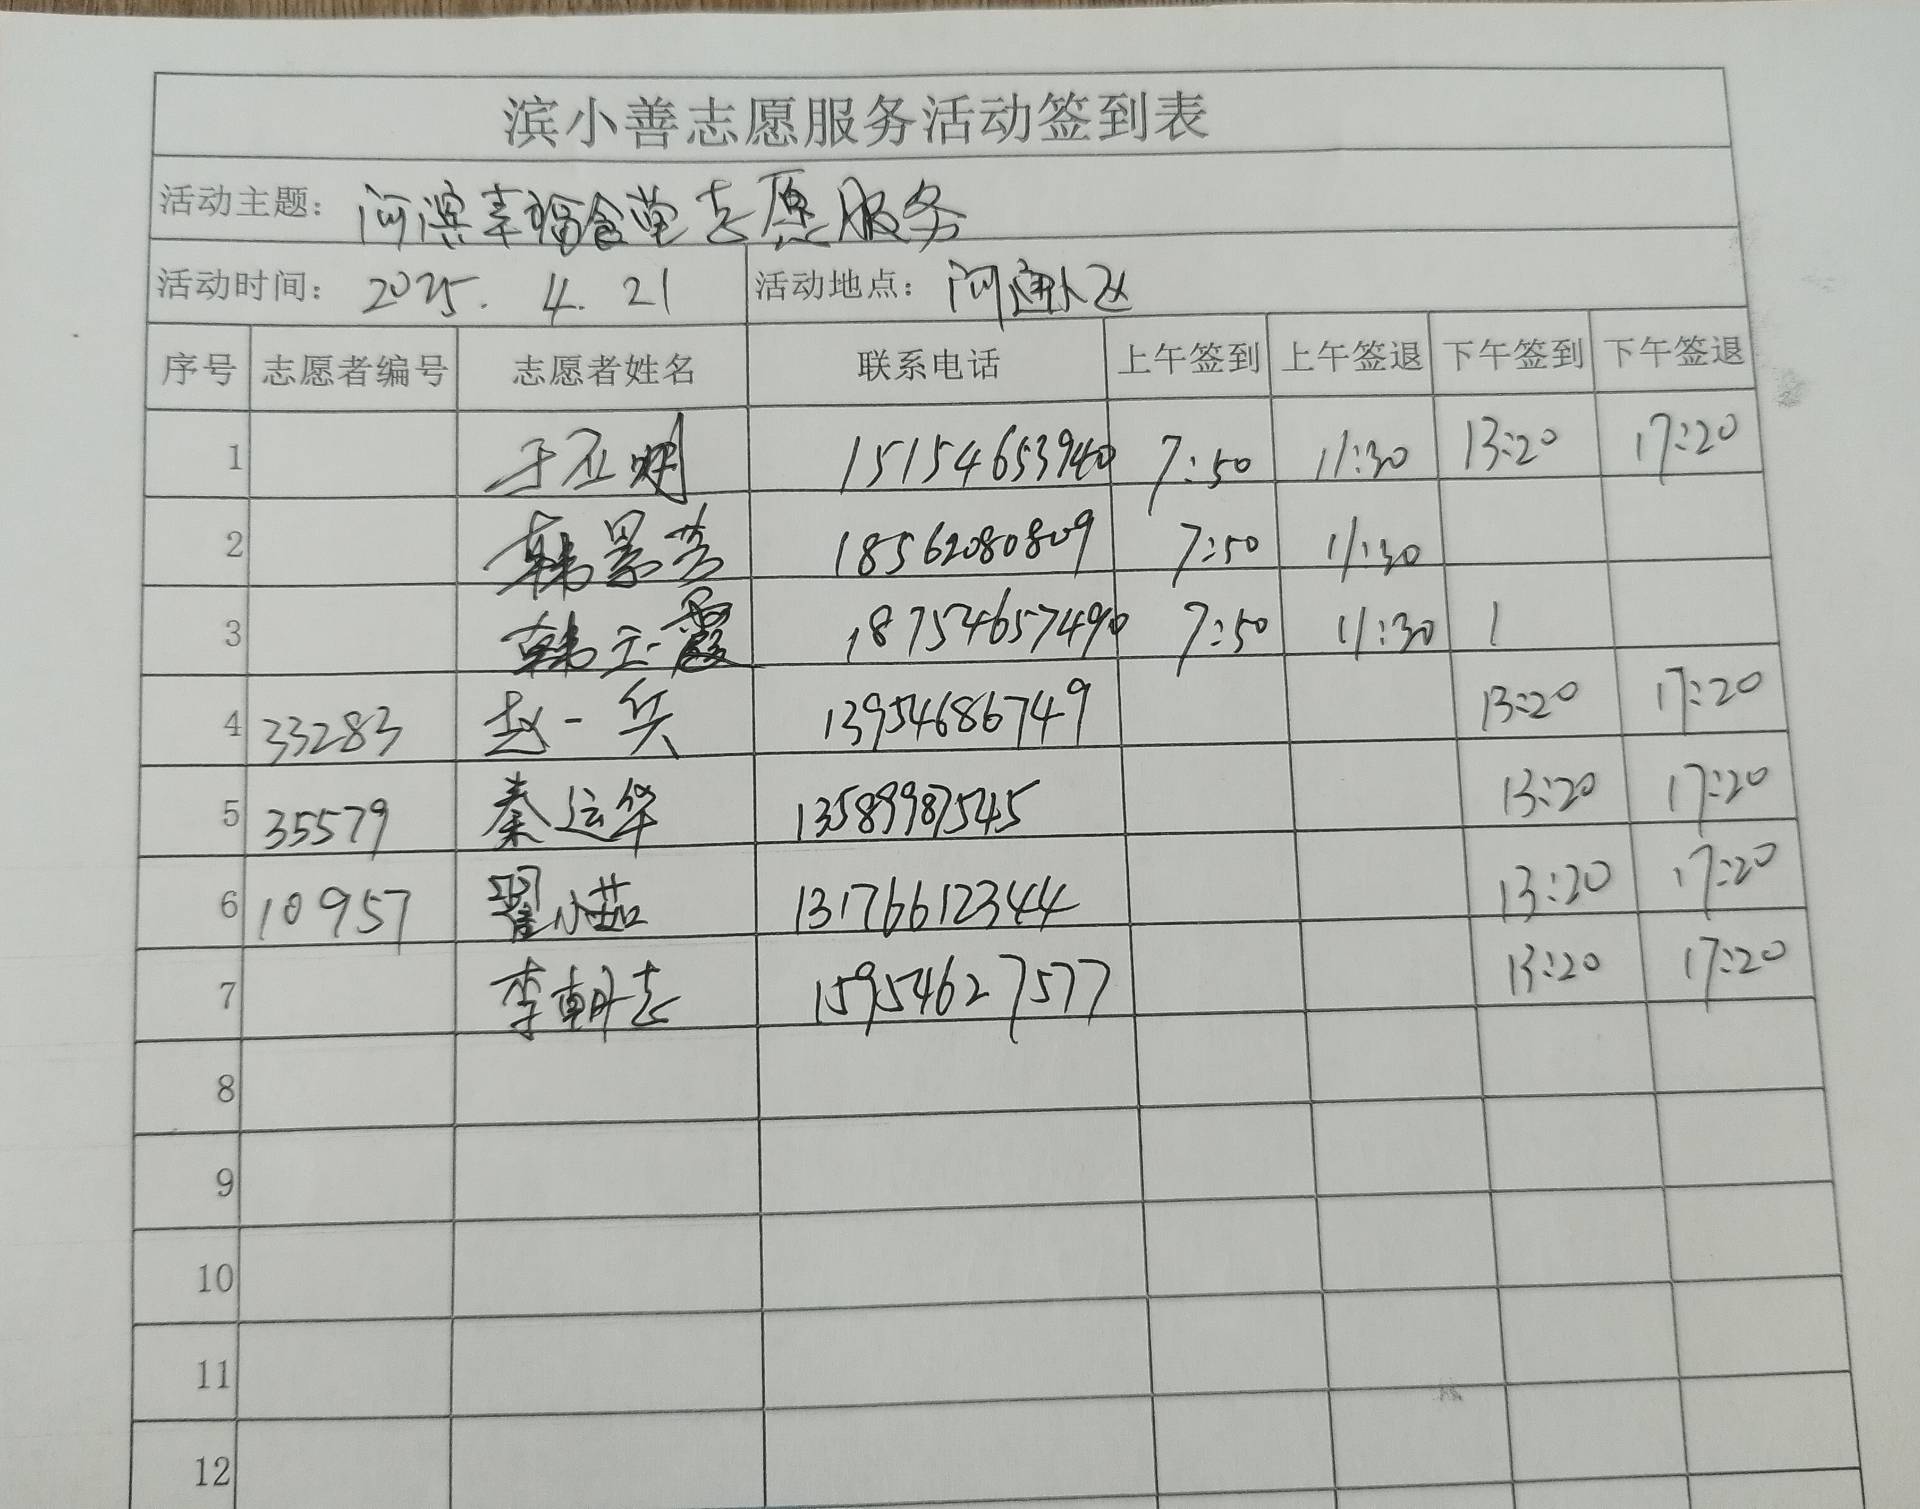 滨小善志愿服务活动签到表
活动主题： 河滨幸福食堂志愿服务
活动时间： 2025. 4. 21 活动地点：
序号 志愿者编号 志愿者姓名 联系电话 上午签到 上午签退 下午签到 下午签退
1 15154653940 7:50 11:30 13:20 17:20
2 韩景芳 18562080809 7:50 11:30
3 韩立霞 18754657490 7:50 11:30 1
4 33283 赵一兵 13954686749 13:20 17:20
5 35579 秦运华 13589987545 13:20 17:20
6 10957 翟小茹 13176612344 13:20 17:20
7 李朝志 15954627577 13:20 17:20
8
9
10
11
12